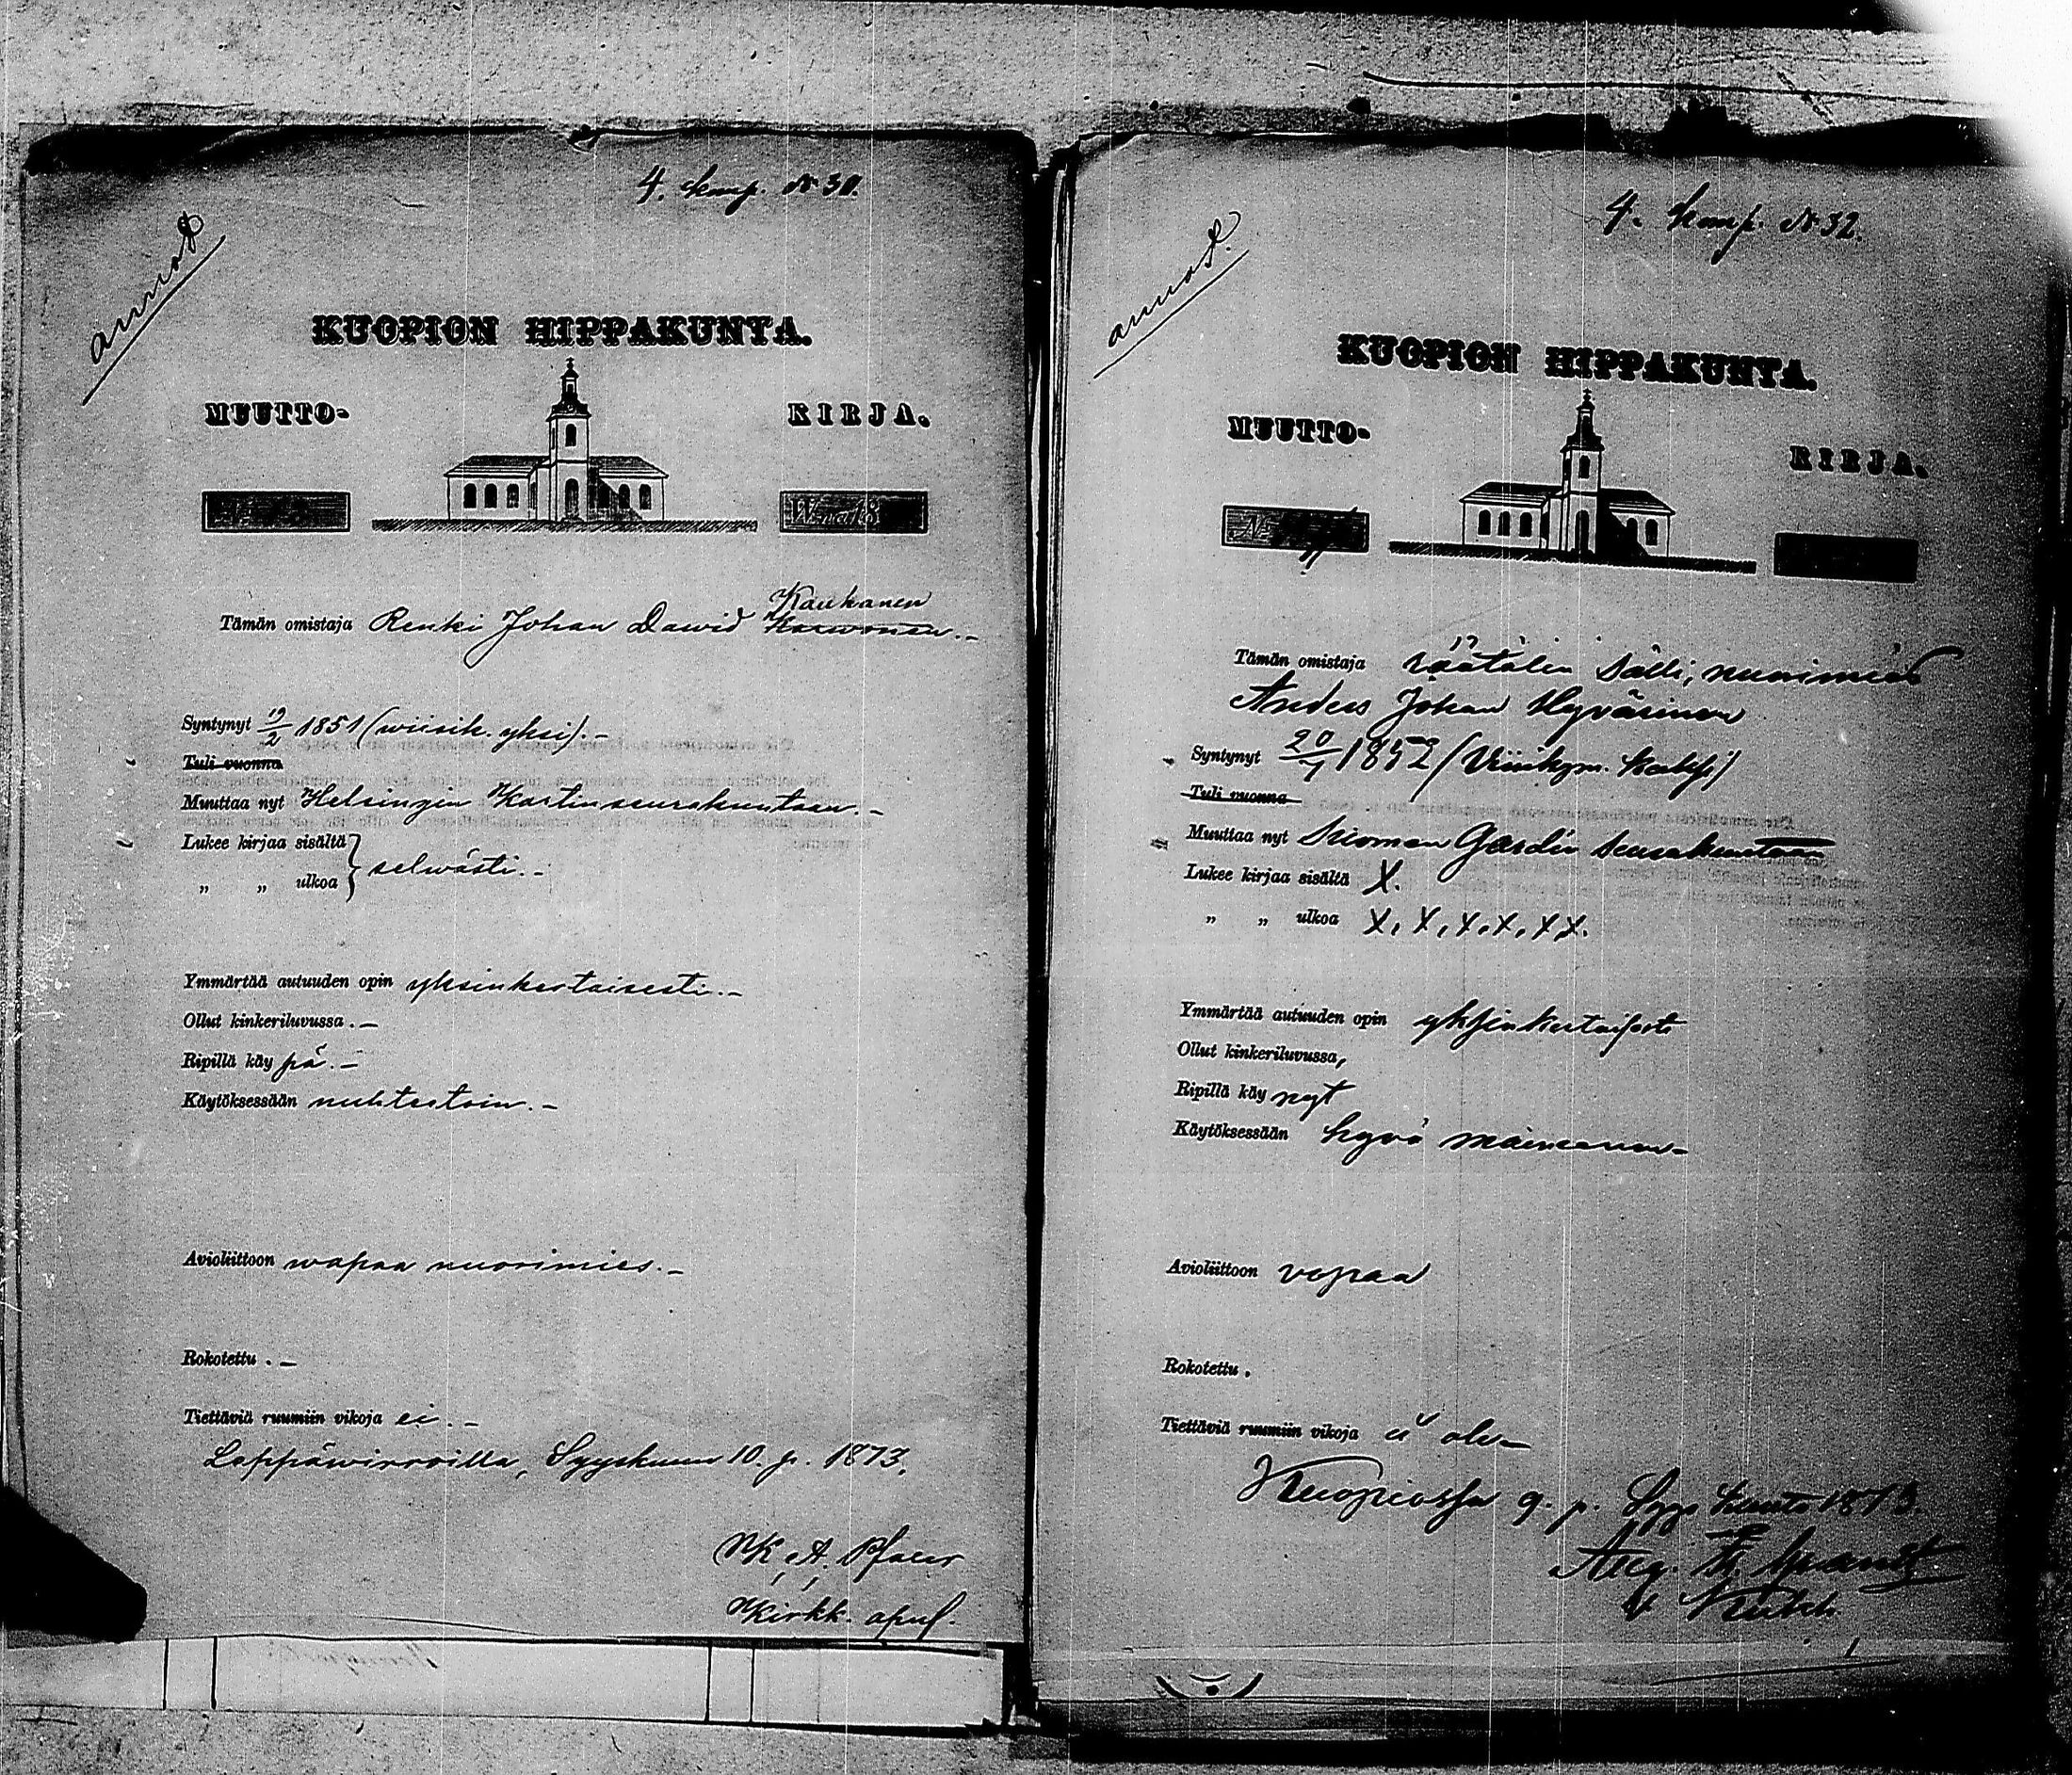 4. komp. N 30.
annot
KUOPION HIPPAKUNTA.
MUUTTO- KIRJA.
W:na 18
Tämän omistaja Renki Johan Dawid Kaukanen
Syntynyt 19/2 1851 (wiisik. yksi). –
Tuli vuonna
Muuttaa nyt Helsingin Kaartinseurakuntaan. –
Lukee kirjaa sisältä
„ „ ulkoa } selwästi. –
Ymmärtää autuuden opin yksinkertaisesti. –
Ollut kinkeriluvussa. –
Ripillä käy pä. –
Käytöksessään nuhteetoin. –
Avioliittoon wapaa nuorimies. –
Rokotettu. –
Tiettäviä ruumiin vikoja ei. –
Leppäwirroilla, Syyskuun 10. p. 1873.
A. Pfaler
Kirkk. apul.
4. komp. N 32.
annot.
KUOPION HIPPAKUNTA.
MUUTTO- KIRJA.
N:
Tämän omistaja räätälin sälli, nuorimies
Anders Johan Hyvärinen
Syntynyt 20/1 1852 (Viiskym. kaksi)
Tuli vuonna
Muuttaa nyt Suomen Gardin seurakuntaan
Lukee kirjaa sisältä X.
„ „ ulkoa X, X, X, X, X X.
Ymmärtää autuuden opin yksinkertaisesti
Ollut kinkeriluvussa,
Ripillä käy nyt
Käytöksessään hyvä maineinen –
Avioliittoon vapaa
Rokotettu.
Tiettäviä ruumiin vikoja ei ole –
Kuopiossa 9. p. Syys kuuta 1873.